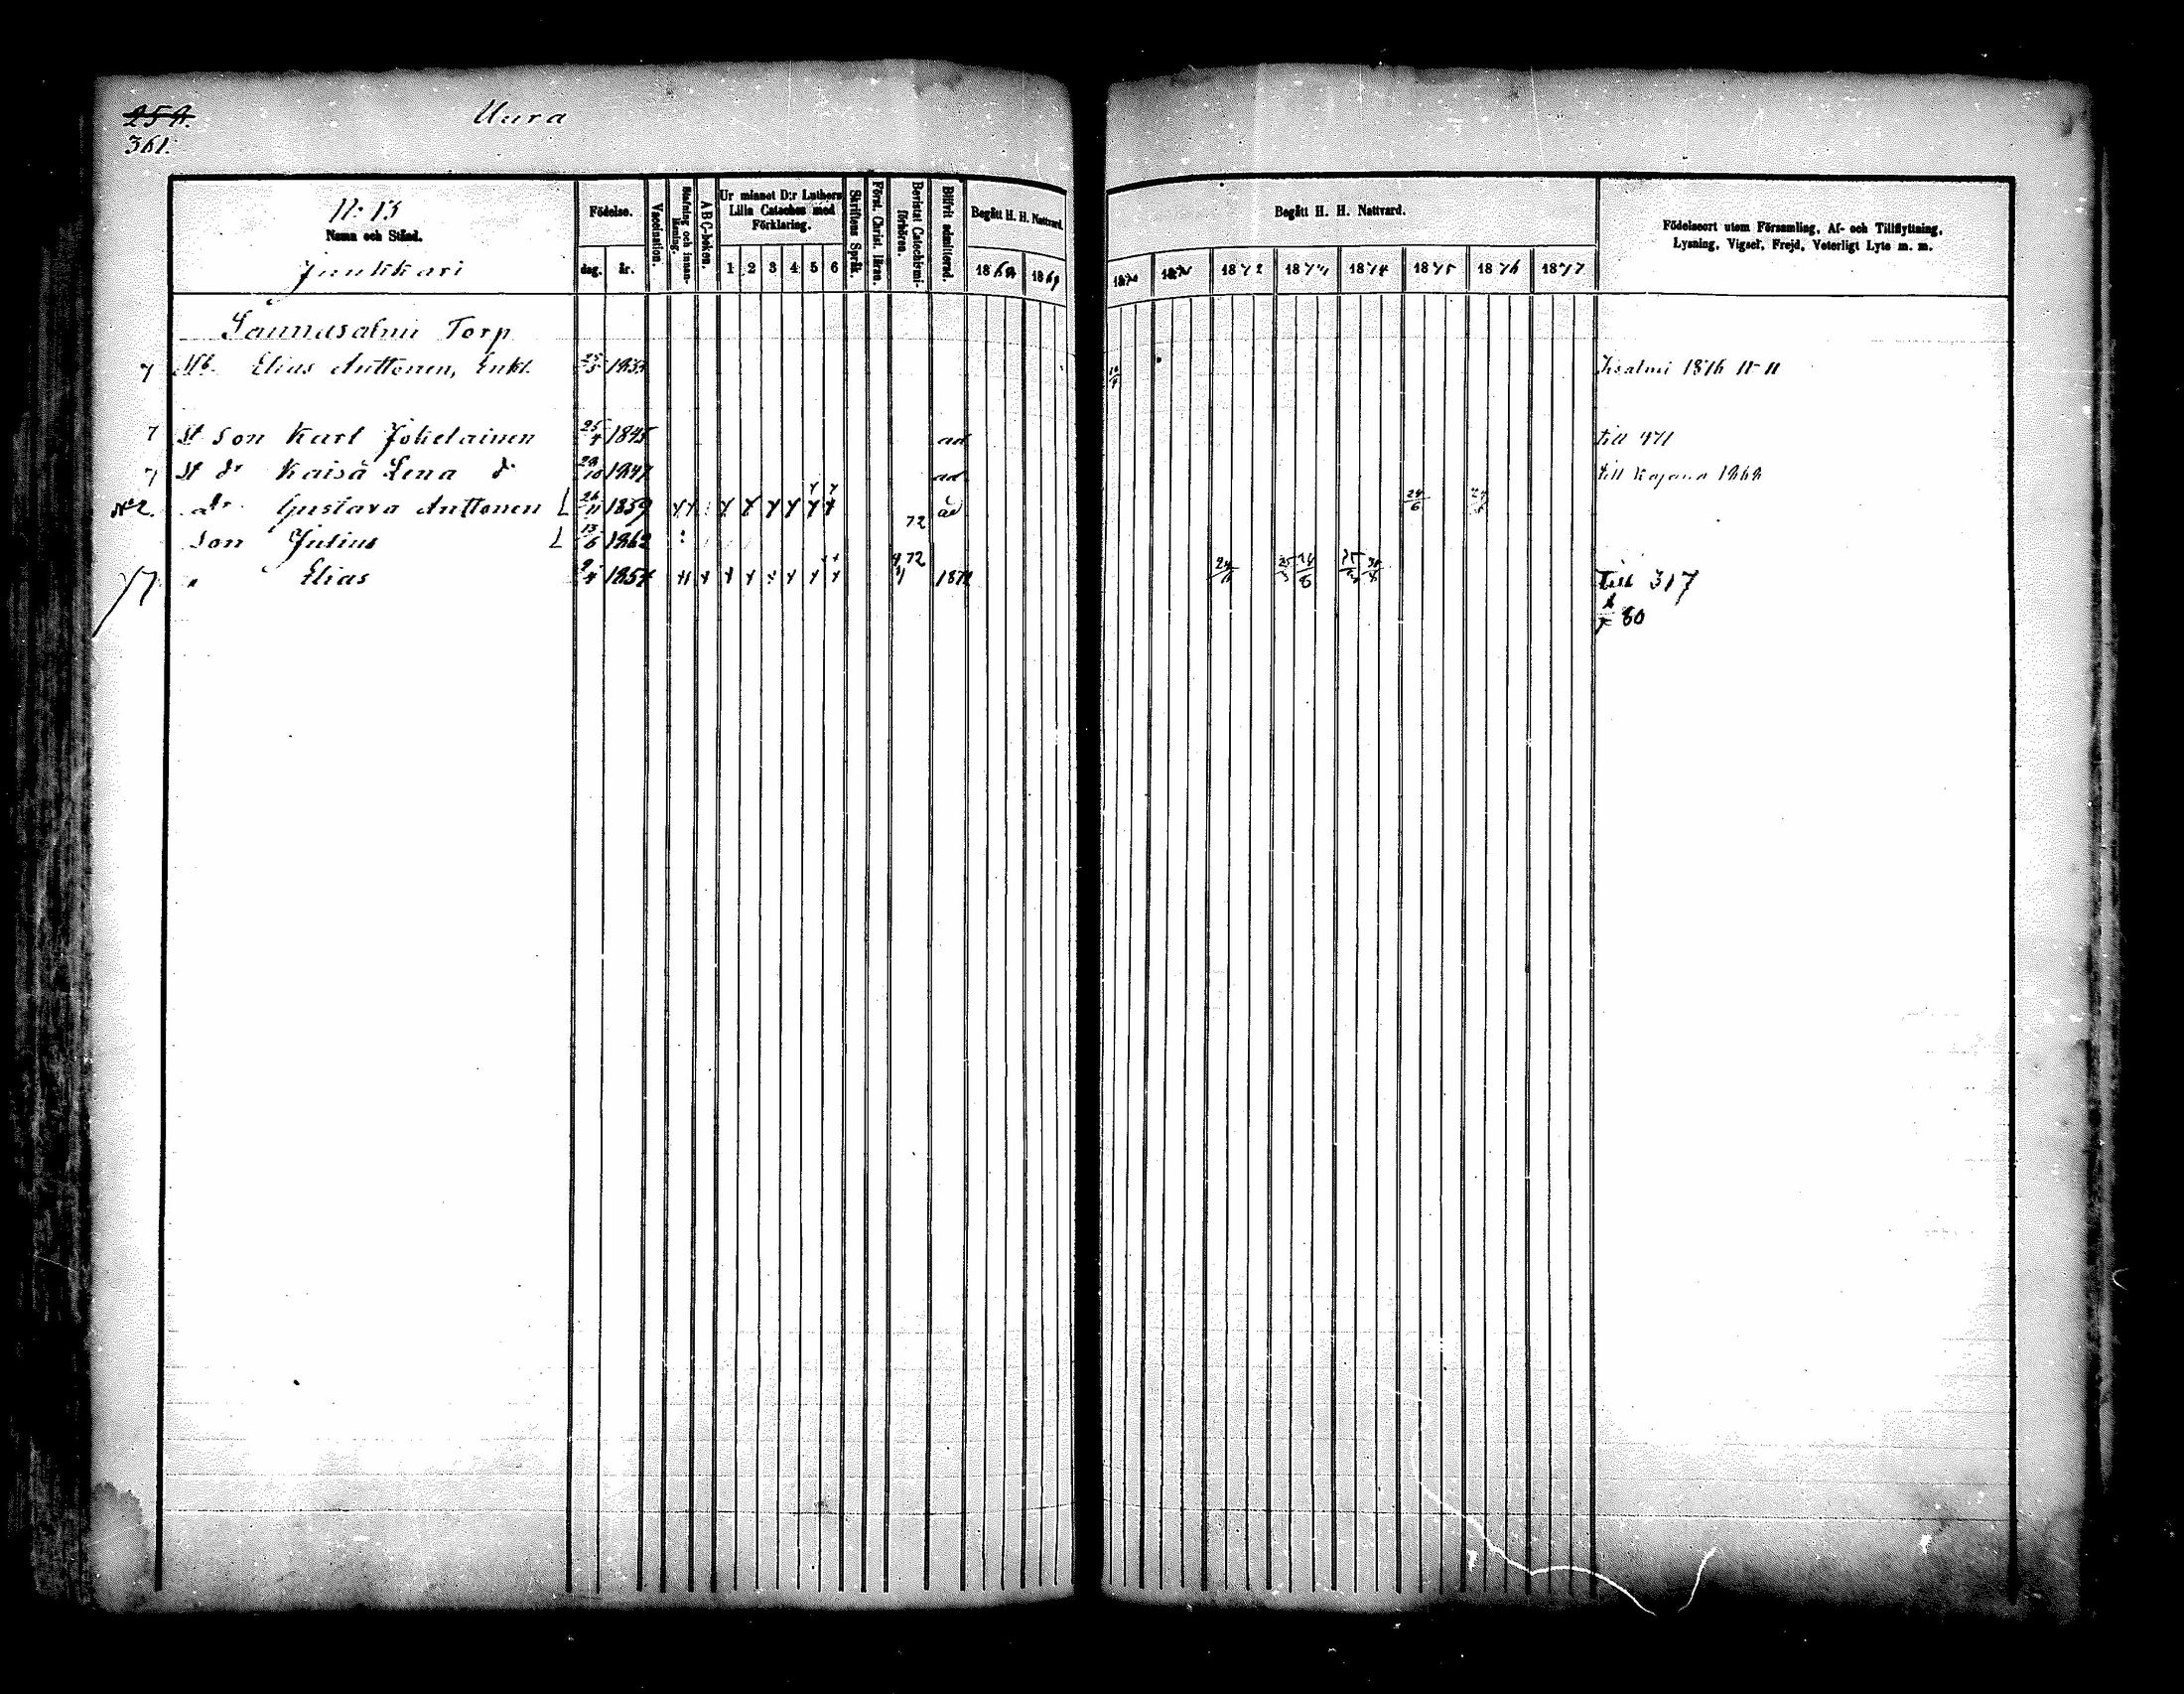 252.
361.
Uura
N:o 13
Namn och Stånd.
Juukkari
Födelse.
dag.
år.
Vaccination.
Stafning och innanläsning.
A B C-boken.
Ur minnet D:r Luthers Lilla Cateches med Förklaring.
1 2 3 4 5 6
Skriftens Språk.
Först. Christ. läran.
Bevistat Catechismiförhören.
Blifvit admitterad.
Begått H. H. Nattvard.
1868 1869
Begått H. H. Nattvard.
1870 1871 1872 1873 1874 1875 1876 1877
Födelseort utom Församling, Af- och Tillflyttning, Lysning, Vigsel, Frejd, Veterligt Lyte m. m.
Saunasalmi Torp
7 Mb. Elias Anttonen, Enkl. 25/3 1833 Iisalmi 1876 N 11
7 St Son Karl Jokelainen 25/4 1845 ad till 471
7 St dr Kaisa Lena d:o 29/10 1847 ad till Kajana 1868
N:o 2. dr Gustava Anttonen L 26/11 1859 72 ad 24/6
Son Julius L 13/6 1862
" Elias 9/4 1854 72 1872 24/11 25/3 24/8 till 317
80